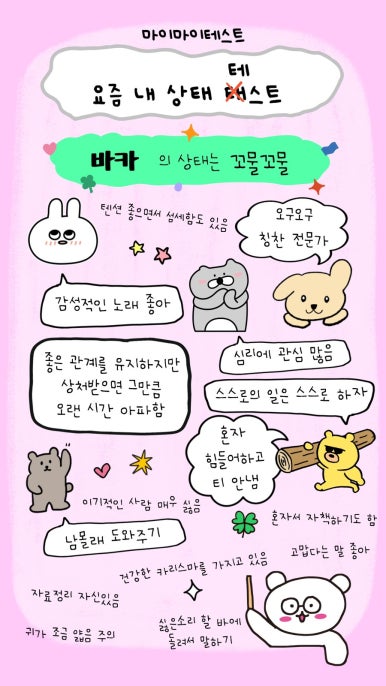 마이마이테스트
테
요즘 내 상태 태스트
바카 의 상태는 꼬물꼬물
텐션 좋으면서 섬세함도 있음
오구오구
칭찬 전문가
감성적인 노래 좋아
심리에 관심 많음
좋은 관계를 유지하지만
상처받으면 그만큼
오랜 시간 아파함
스스로의 일은 스스로 하자
혼자
힘들어하고
티 안냄
이기적인 사람 매우 싫음
혼자서 자책하기도 함
남몰래 도와주기
고맙다는 말 좋아
건강한 카리스마를 가지고 있음
자료정리 자신있음
싫은소리 할 바에
돌려서 말하기
귀가 조금 얇음 주의